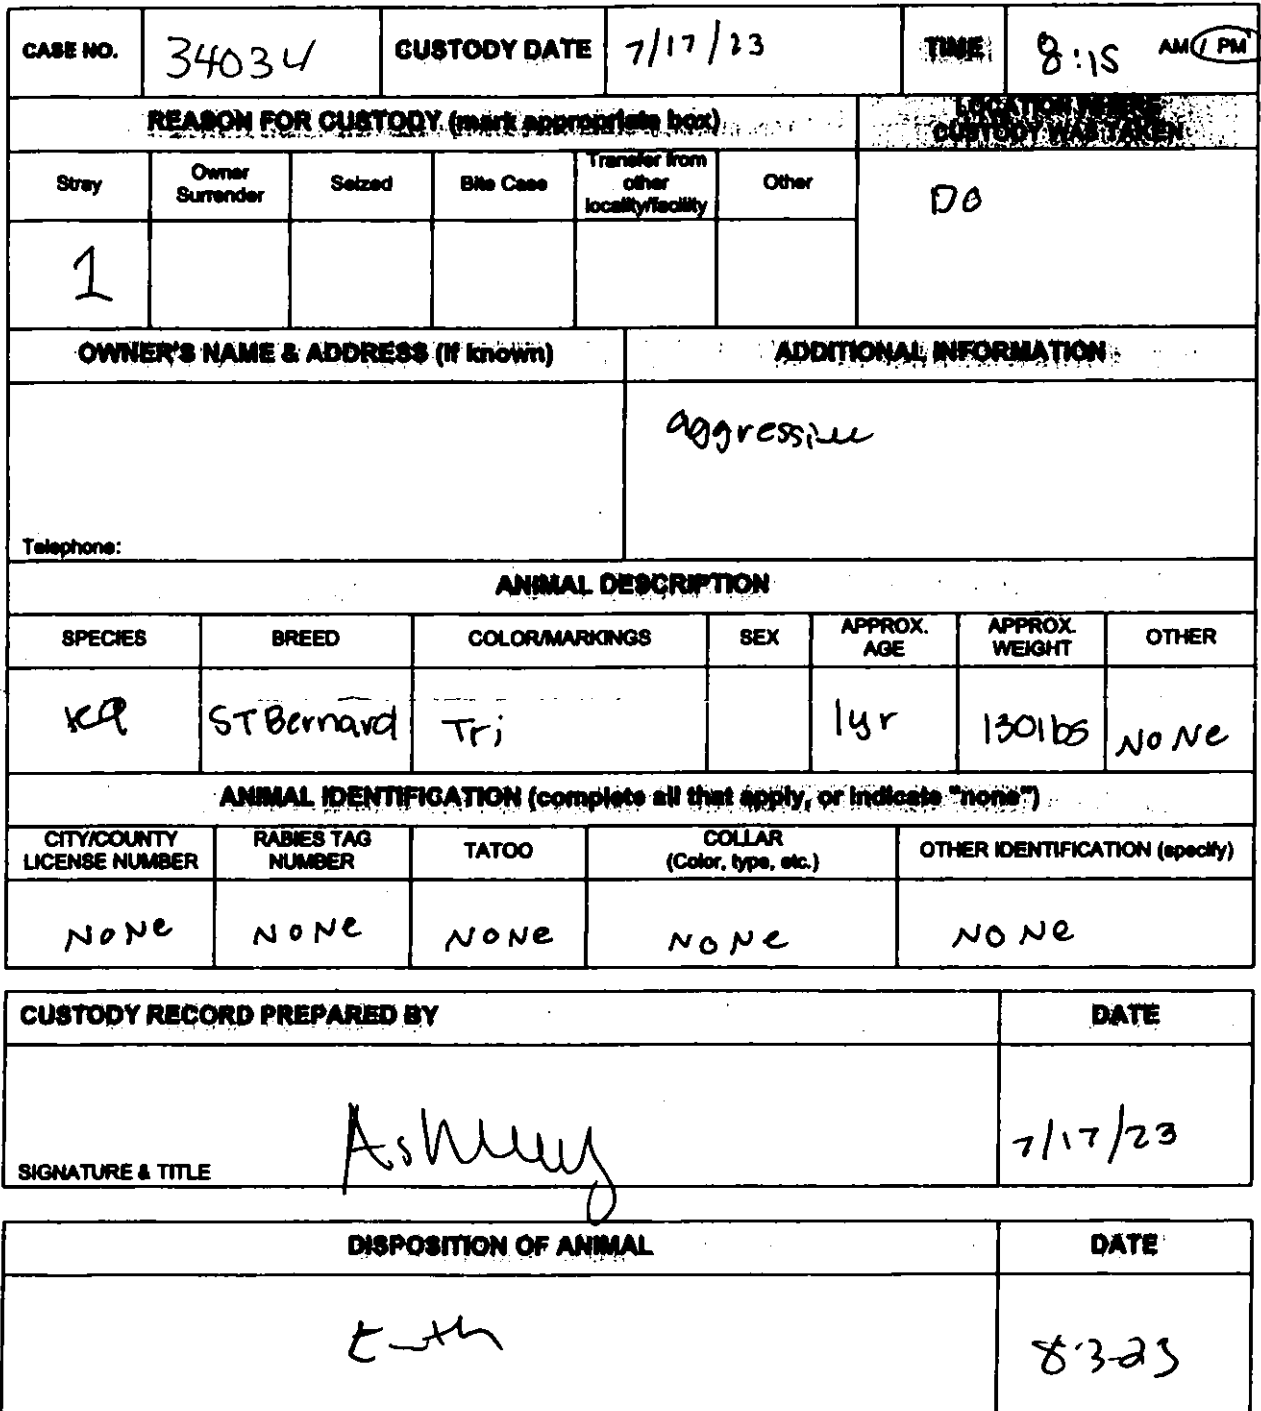 CASE NO. 34034 CUSTODY DATE 7/17/23 TIME 8:15 AM / PM
REASON FOR CUSTODY (mark appropriate box)
LOCATION WHERE
CUSTODY WAS TAKEN
Stray
Owner
Surrender
Seized
Bite Case
Transfer from
other
locality/facility
Other
DO
1
OWNER'S NAME & ADDRESS (if known)
ADDITIONAL INFORMATION
aggressive
Telephone:
ANIMAL DESCRIPTION
SPECIES BREED COLOR/MARKINGS SEX APPROX. AGE APPROX. WEIGHT OTHER
K9 ST Bernard Tri 1yr 130lbs NONe
ANIMAL IDENTIFICATION (complete all that apply, or indicate "none")
CITY/COUNTY
LICENSE NUMBER
RABIES TAG
NUMBER
TATOO
COLLAR
(Color, type, etc.)
OTHER IDENTIFICATION (specify)
NONe NONe NONe NONe NONe
CUSTODY RECORD PREPARED BY DATE
Ashley
7/17/23
SIGNATURE & TITLE
DISPOSITION OF ANIMAL DATE
8-3-23